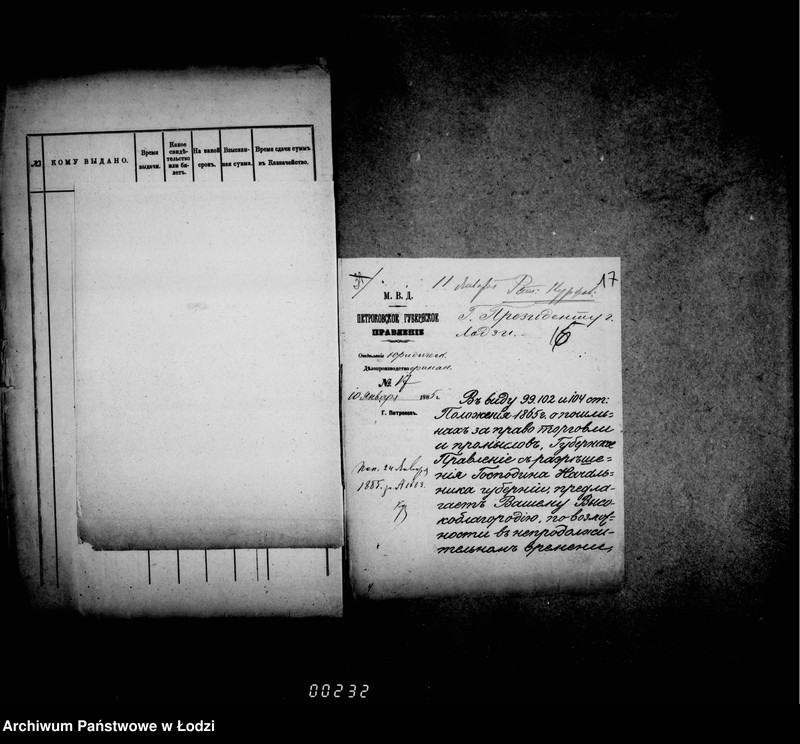 №
КОМУ ВЫДАНО.
Время
выдачи.
Какое
свидѣ-
тельство
или би-
летъ.
На какой
срокъ.
Взыскан-
ная сумма.
Время сдачи суммъ
въ Казначейство.
11 Января
17
М. В. Д.
ПЕТРОКОВСКОЕ ГУБЕРНСКОЕ
ПРАВЛЕНІЕ
Отдѣленіе Юридическ.
Дѣлопроизводство
№ 17
10 Января 1885 г.
Г. Петроковъ.
Г. Президенту г.
Лодзи.
16
Въ виду 99. 102 и 104 ст:
Положенія 1865 г. о пошли-
нахъ за право торговли
и промысловъ, Губернское
Правленіе съ разрѣше-
нія Господина Началь-
ника губерніи, предла-
гаетъ Вашему Высо-
коблагородію, по возмож-
ности въ непродолжи-
тельномъ времени,
24 Января
1885 г.
00232
Archiwum Państwowe w Łodzi